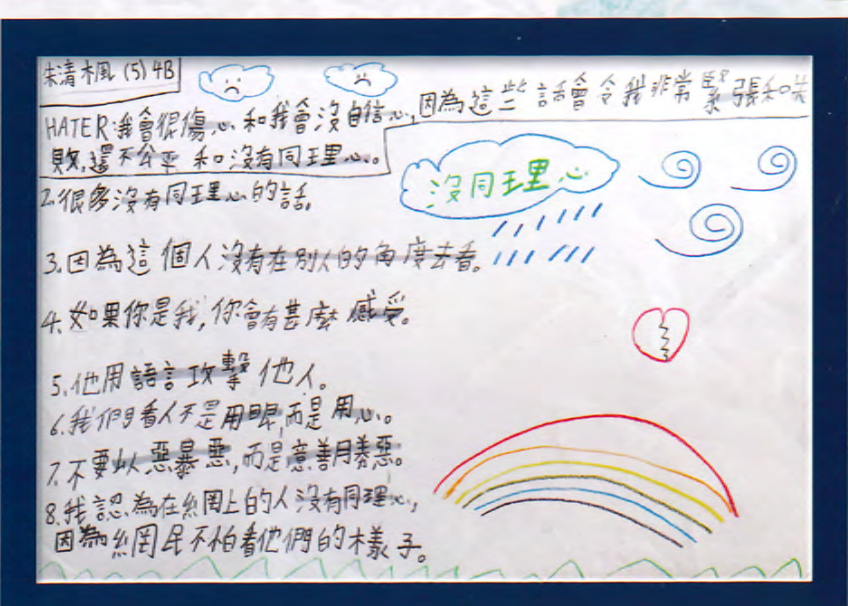 朱清楓 (5) 4B
HATER:我會很傷心和我會沒自信心,因為這些話會令我非常緊張和失
敗,還不公平和沒有同理心。
沒同理心
2.很多沒有同理心的話。
3.因為這個人沒有在別人的角度去看。
4.如果你是我,你會有甚麼感受。
5.他用語言攻擊他人。
6.我們看人不是用眼,而是用心。
7.不要以惡暴惡,而是意善勝惡。
8.我認為在網上的人沒有同理心,
因為網民不怕看他們的樣子。